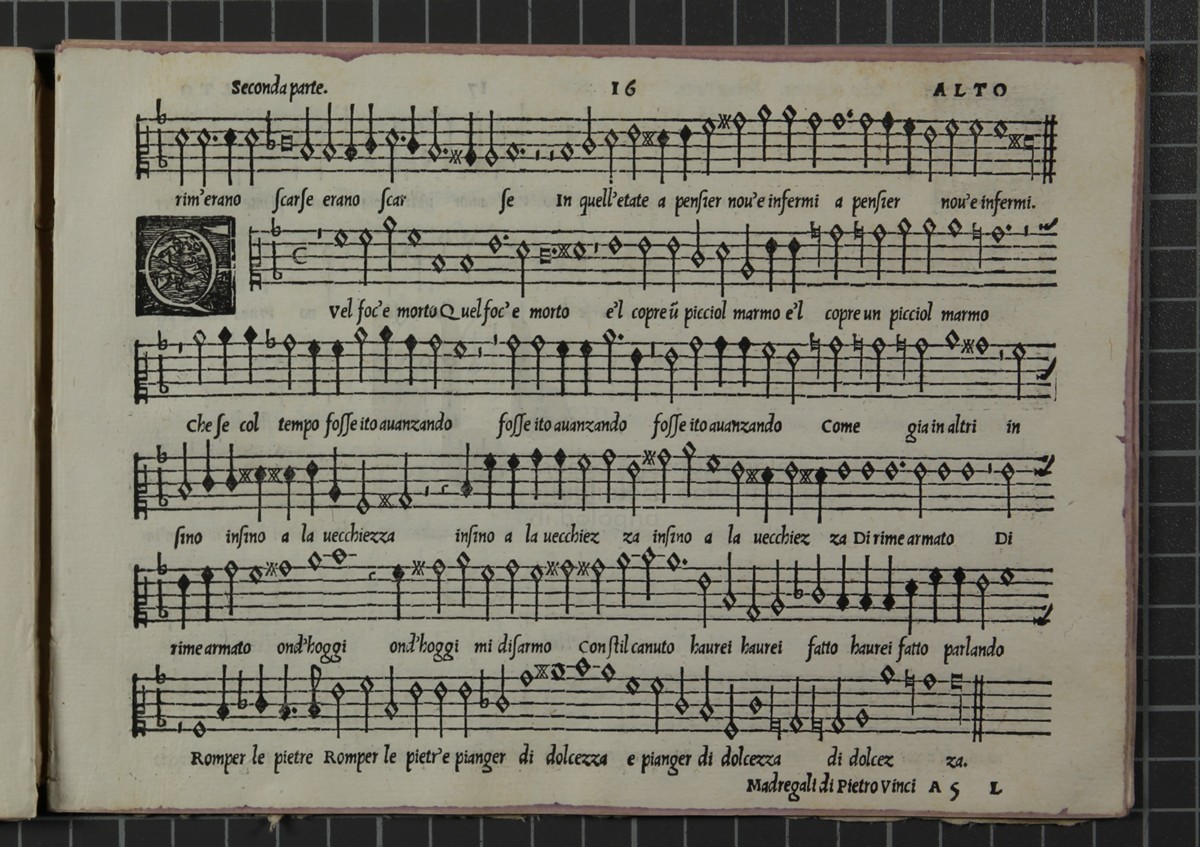 Seconda parte. 16 ALTO
rim'erano scarse erano scar se In quell'etate a pensier nou'e infermi a pensier nou'e infermi.
QVel foc'e morto Quel foc'e morto e'l copre ũ picciol marmo e'l copre un picciol marmo
Che se col tempo fosse ito auanzando fosse ito auanzando fosse ito auanzando Come gia in altri in
sino insino a la uecchiezza insino a la uecchiez za insino a la uecchiez za Di rime armato Di
rime armato ond'hoggi ond'hoggi mi disarmo Con stil canuto haurei haurei fatto haurei fatto parlando
Romper le pietre Romper le pietr'e pianger di dolcezza e pianger di dolcezza di dolcez za.
Madregali di Pietro Vinci A 5 L